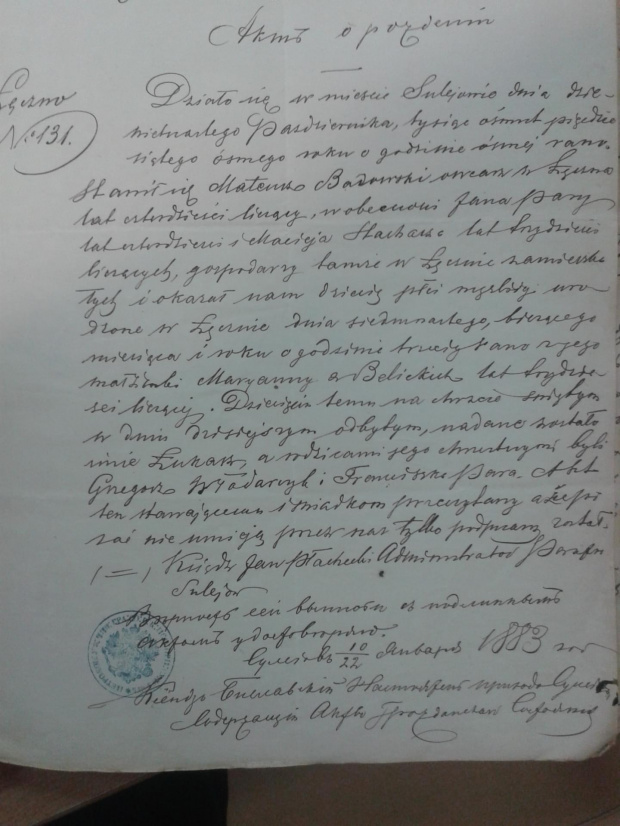 Актъ о рожденіи
Łęczno
N. 131.
Działo się w mieście Sulejowie dnia dzie-
więtnastego Października, tysiąc ośmset pięździe
siątego ósmego roku o godzinie ósmej rano.
Stawił się Mateusz Badowski owczarz w Łęcznie
lat czterdzieści liczący, w obecności Jana Pary
lat czterdzieści i Macieja Stachacz lat trzydzieści
liczących, gospodarzy tamże w Łęcznie zamieszka
łych i okazał nam dziecię płci męzkiej uro
dzone w Łęcznie dnia siedmnastego, bieżącego
miesiąca i roku o godzinie trzeciej rano z jego
małżonki Maryanny z Belickich lat trzydzie
ści liczącej. Dziecięciu temu na chrzcie świętym
w dniu dzisiejszym odbytym, nadane zostało
imie Łukasz, a rodzicami jego chrzestnymi byli
Grzegorz Włodarczyk i Franciszka Para. Akt
ten stawającemu i świadkom przeczytany a że pi
sać nie umieją przez nas tylko podpisany został
/=/ Ksiądz Jan Płachecki Administrator Parafii
Sulejów
сей выписи съ подлиннымъ
актомъ удостоверяю.
Сулеевъ 10/22 Января 1883 год
Ксендзъ Настоятель прихода
Содержащій Акты Гражданскаго Состоянія